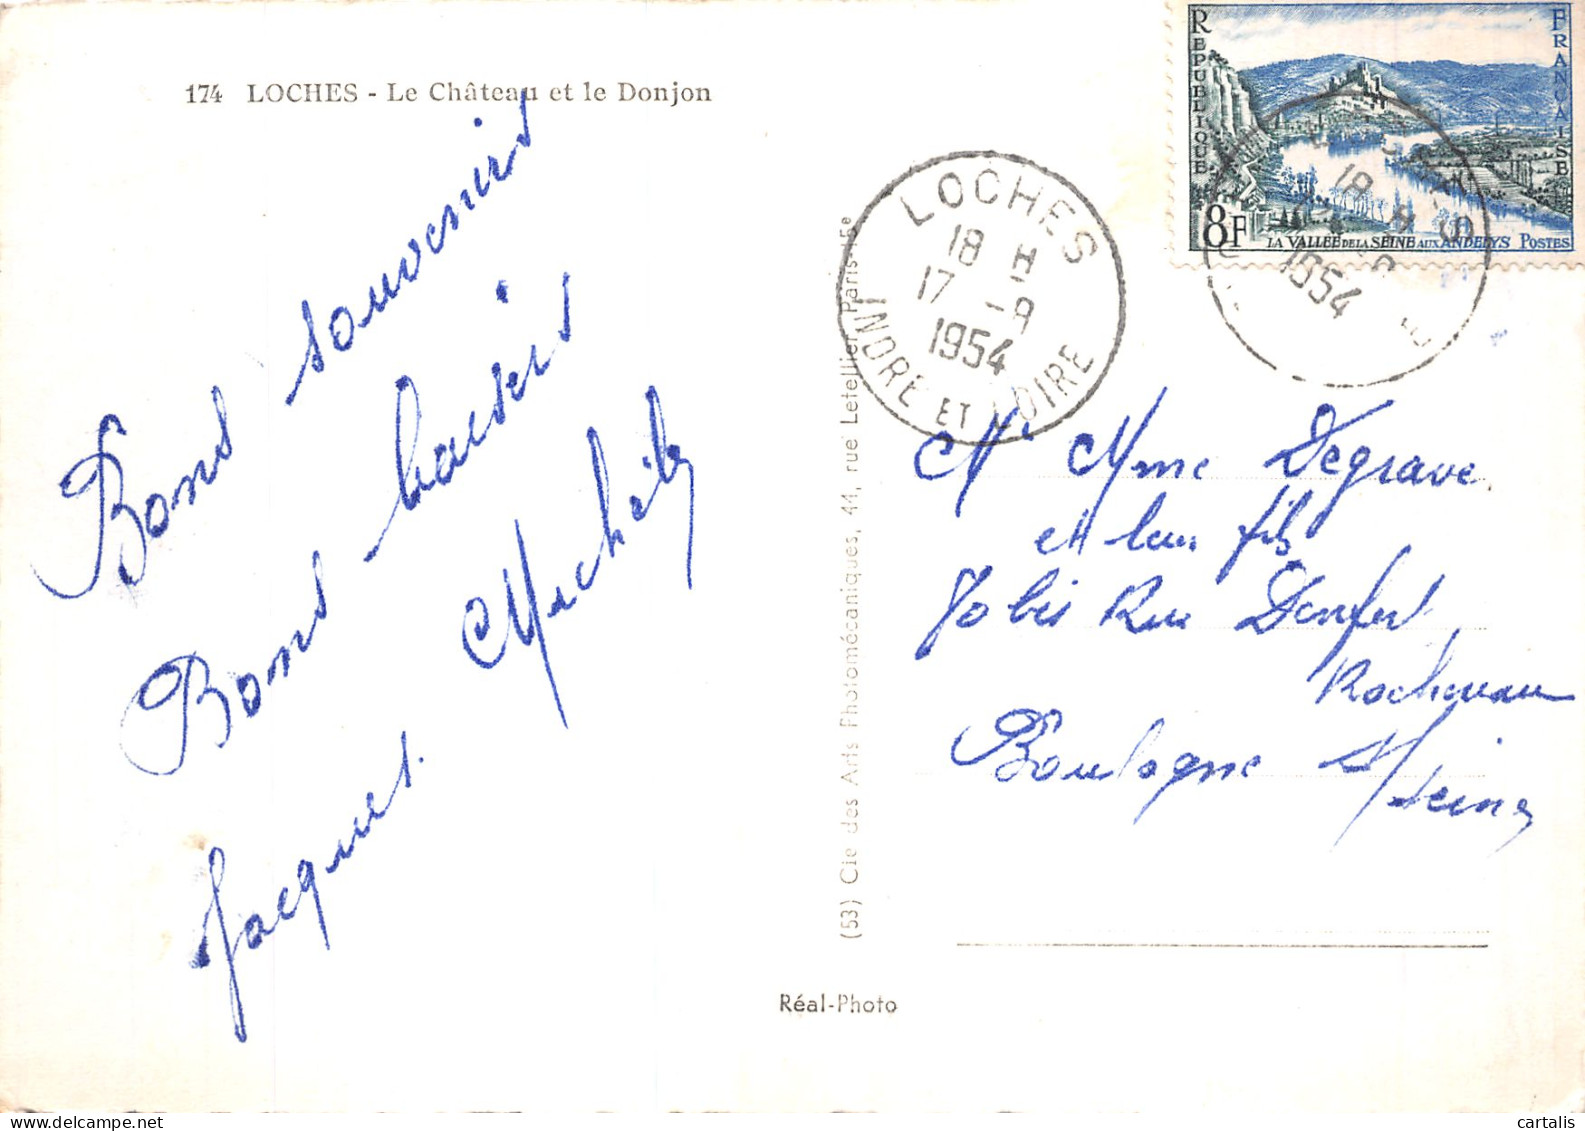 174 LOCHES - Le Château et le Donjon
Bons souvenirs
Bons baisers
Jacques.
(53) Cie des Arts Photomécaniques, 44, rue Letellier, Paris-15e
Réal-Photo
RÉPUBLIQUE
FRANÇAISE
8F
LA VALLÉE DE LA SEINE AUX ANDELYS POSTES
LOCHES
18 H
17 -9
1954
INDRE ET LOIRE
18 H
1954
M Mme Degrave
et leur fils
70 bis Rue Denfert
Rochereau
Boulogne s/Seine
cartalis